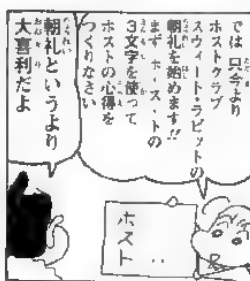 では 只今より
ホストクラブ
スウィート・ラビットの
朝礼を始めます!!
まず ホ・ス・トの
3文字を使って
ホストの心得を
つくりなさい
朝礼というより
大喜利だよ
ホスト